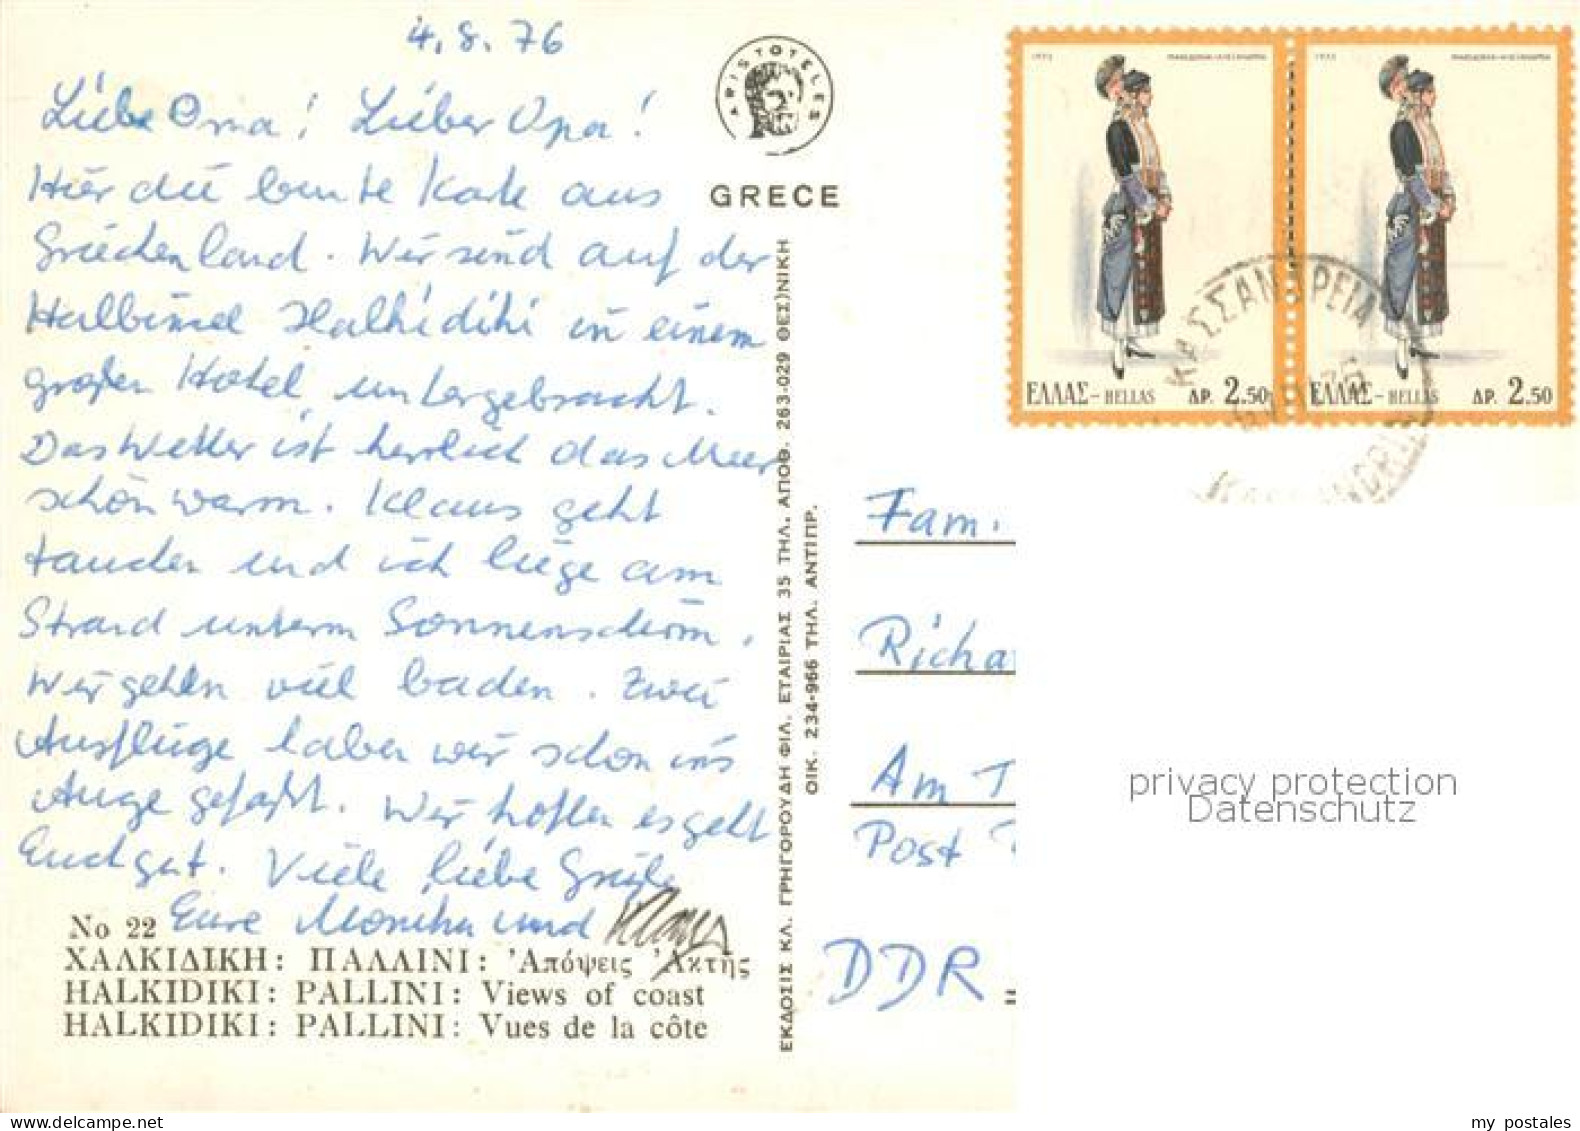 4. 8. 76
Liebe Oma! Lieber Opa!
Hier die bunte Karte aus
Griechenland. Wir sind auf der
Halbinsel Halkidiki in einem
großen Hotel untergebracht.
Das Wetter ist herrlich das Meer
schön warm. Klaus geht
tauchen und ich liege am
Strand unterm Sonnenschirm.
Wir gehen viel baden. Zwei
Ausflüge haben wir schon ins
Auge gefaßt. Wir hoffen es geht
Euch gut. Viele liebe Grüße
Eure Monika und Klaus
No 22
ΧΑΛΚΙΔΙΚΗ: ΠΑΛΛΙΝΙ: Ἀπόψεις Ἀκτῆς
HALKIDIKI: PALLINI: Views of coast
HALKIDIKI: PALLINI: Vues de la côte
ARISTOTELES
GRECE
ΕΚΔΟΣΙΣ ΚΛ. ΓΡΗΓΟΡΟΥΔΗ ΦΙΛ. ΕΤΑΙΡΙΑΣ 35 ΤΗΛ. ΑΠΟΘ. 263-029 ΘΕΣ)ΝΙΚΗ
ΟΙΚ. 234-966 ΤΗΛ. ΑΝΤΙΠΡ.
ΕΛΛΑΣ-HELLAS ΔΡ. 2.50
ΕΛΛΑΣ-HELLAS ΔΡ. 2.50
ΚΑΣΣΑΝΔΡΕΙΑ
Fam.
Richa
Am T
Post
DDR =
privacy protection
Datenschutz
my postales
delcampe.net